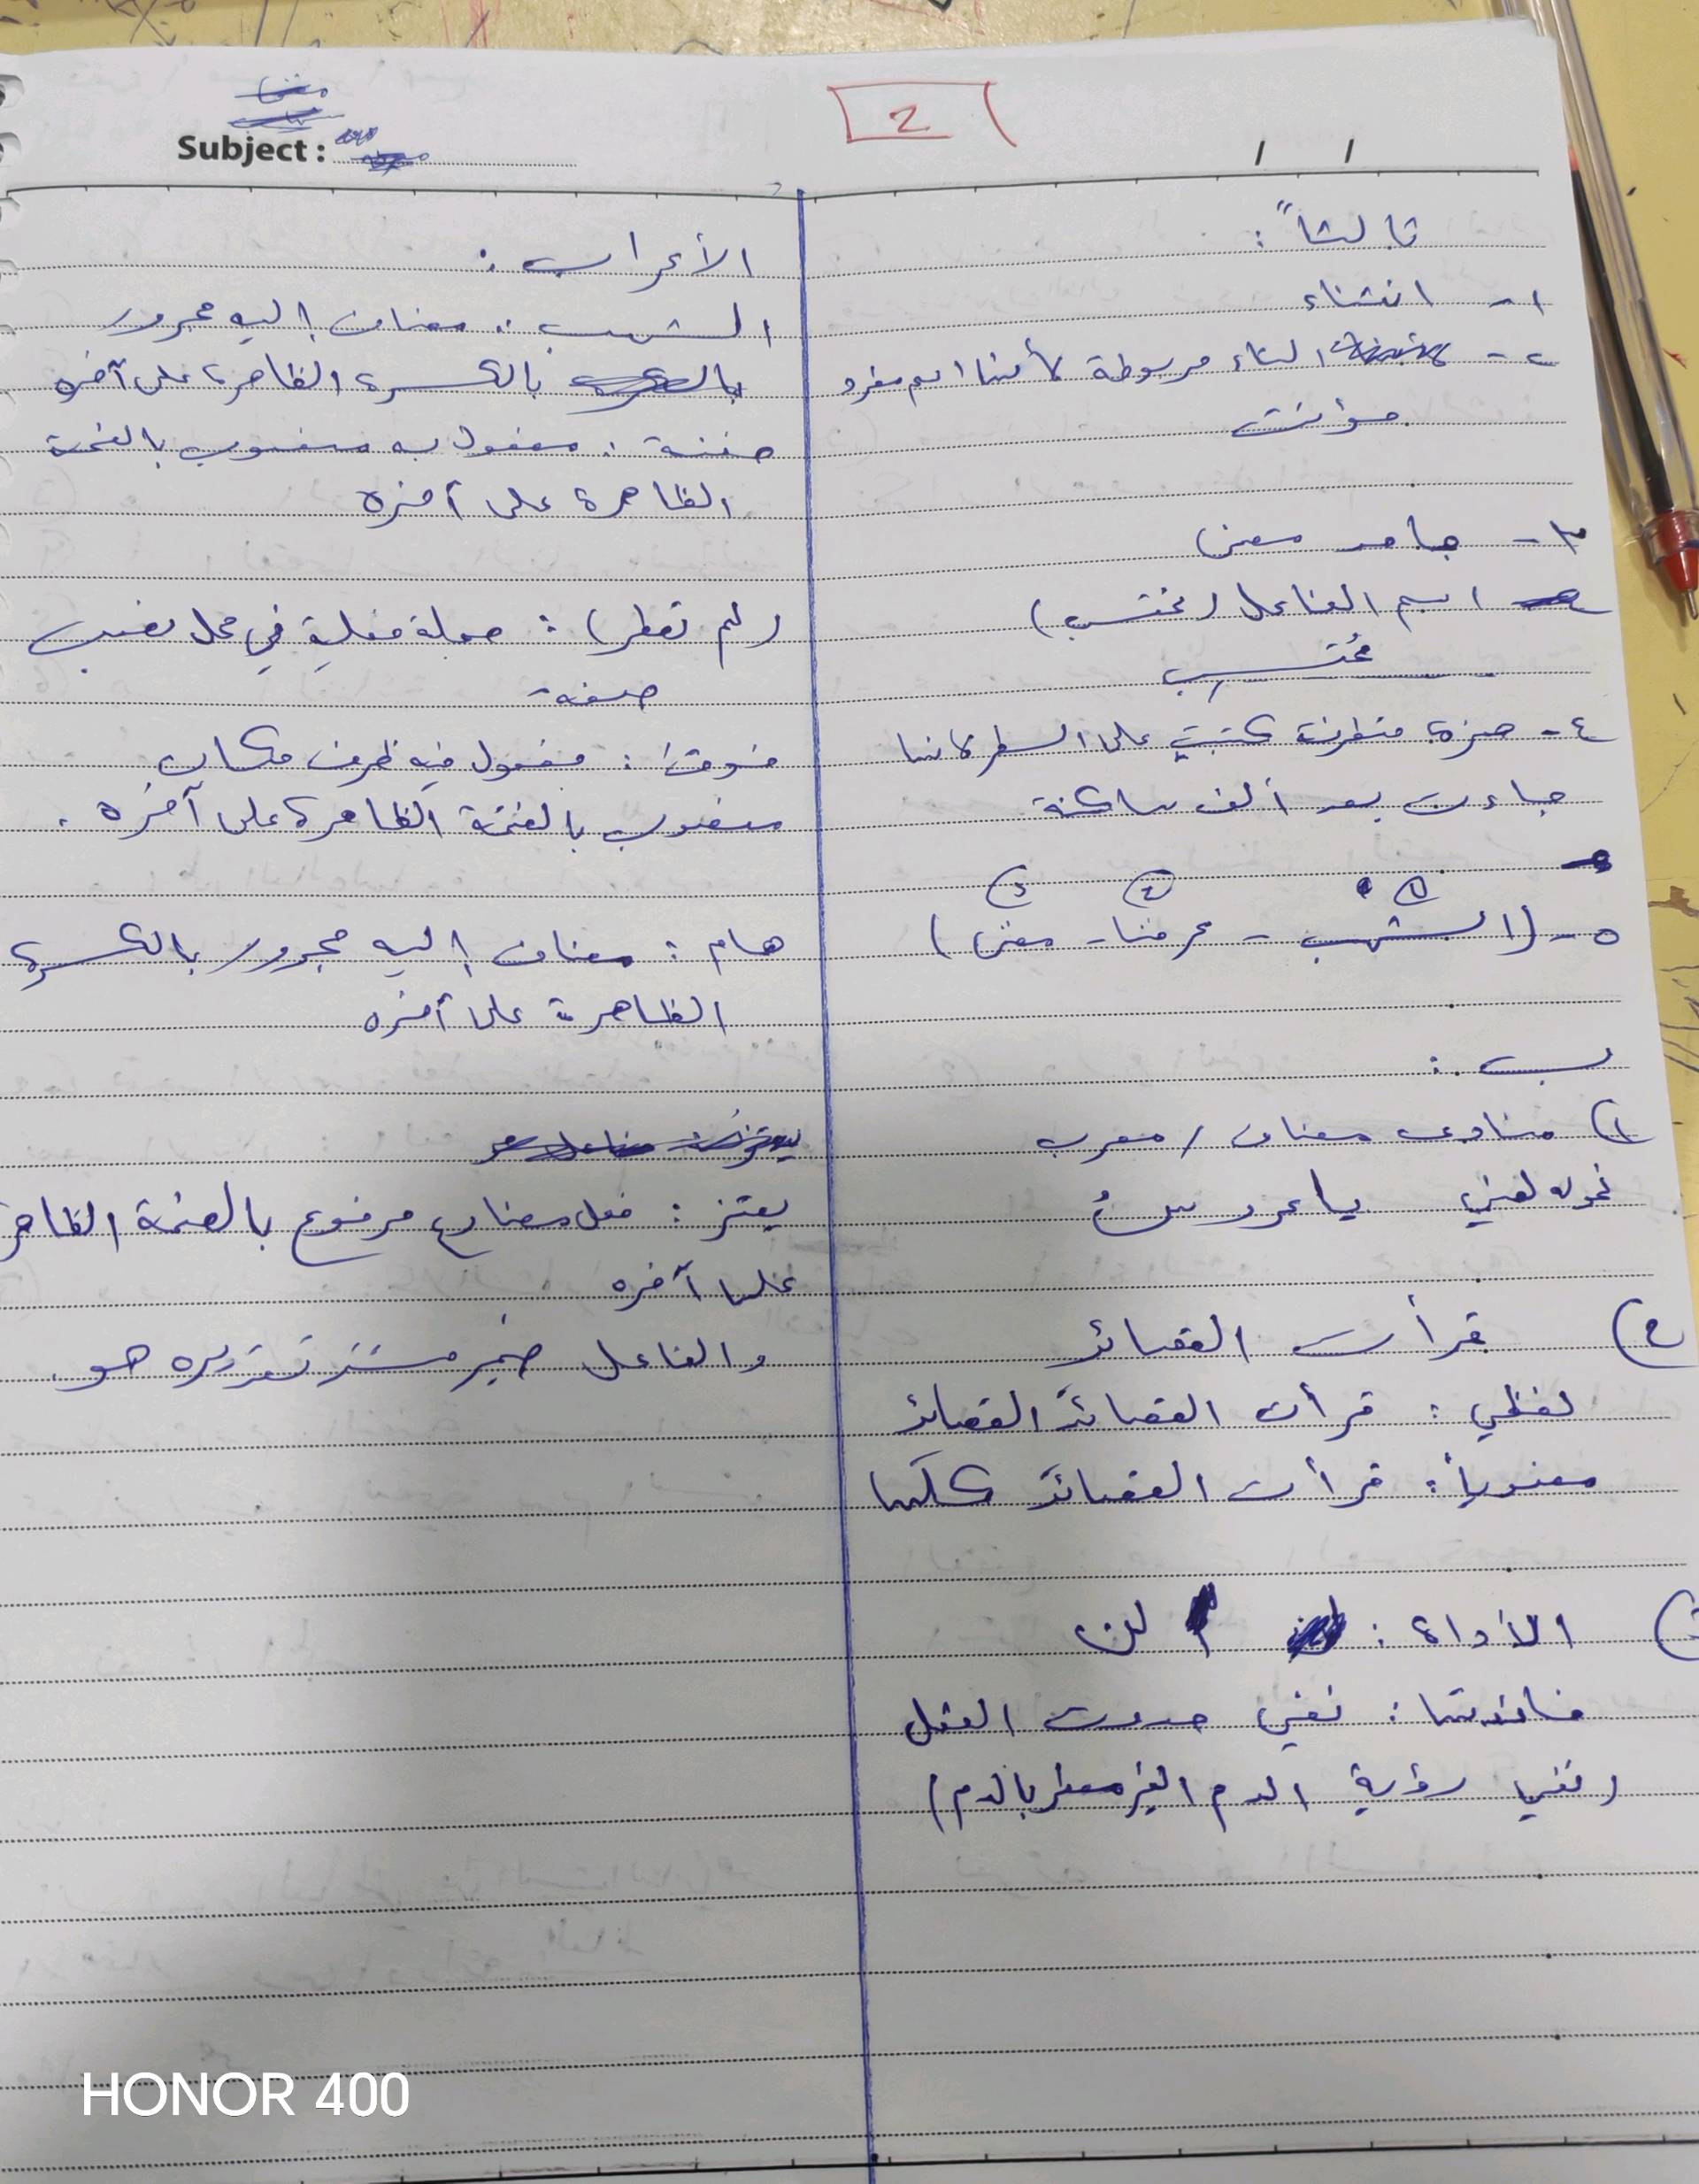 Subject :
2
ثالثاً :
١- انتشاء
٢- التاء مربوطة لأنها اسم مفرد
مؤنث
٣- جامد معنى
اسم الفاعل (مختسب)
مُختسب
٤- همزة متطرفة كتبت على السطر لأنها
جاءت بعد ألف ساكنة
٥- (الشهب - عرفنا - معنى)
١ ٢ ٣
ب :
١) منادى مضاف / معرب
نحوله لمبني يا عروسُ
٢) قرأت القصائد
لفظي : قرأت القصائدَ القصائد
معنوياً : قرأت القصائدَ كلها
الأداة : لن
فائدتها : نفي حدوث الفعل
(نفي رؤية الدم الغير معطر بالدم)
الأعراب :
الشهب : مضاف إليه مجرور
بالكسرة الظاهرة على آخره
حفنة : مفعول به منصوب بالفتحة
الظاهرة على آخره
(لم تعطر) : جملة فعلية في محل نصب
صفة
فوق : مفعول فيه ظرف مكان
منصوب بالفتحة الظاهرة على آخره .
هام : مضاف إليه مجرور بالكسرة
الظاهرة على آخره
يعتز : فعل مضارع مرفوع بالضمة الظاهر
على آخره
والفاعل ضمير مستتر تقديره هو .
HONOR 400